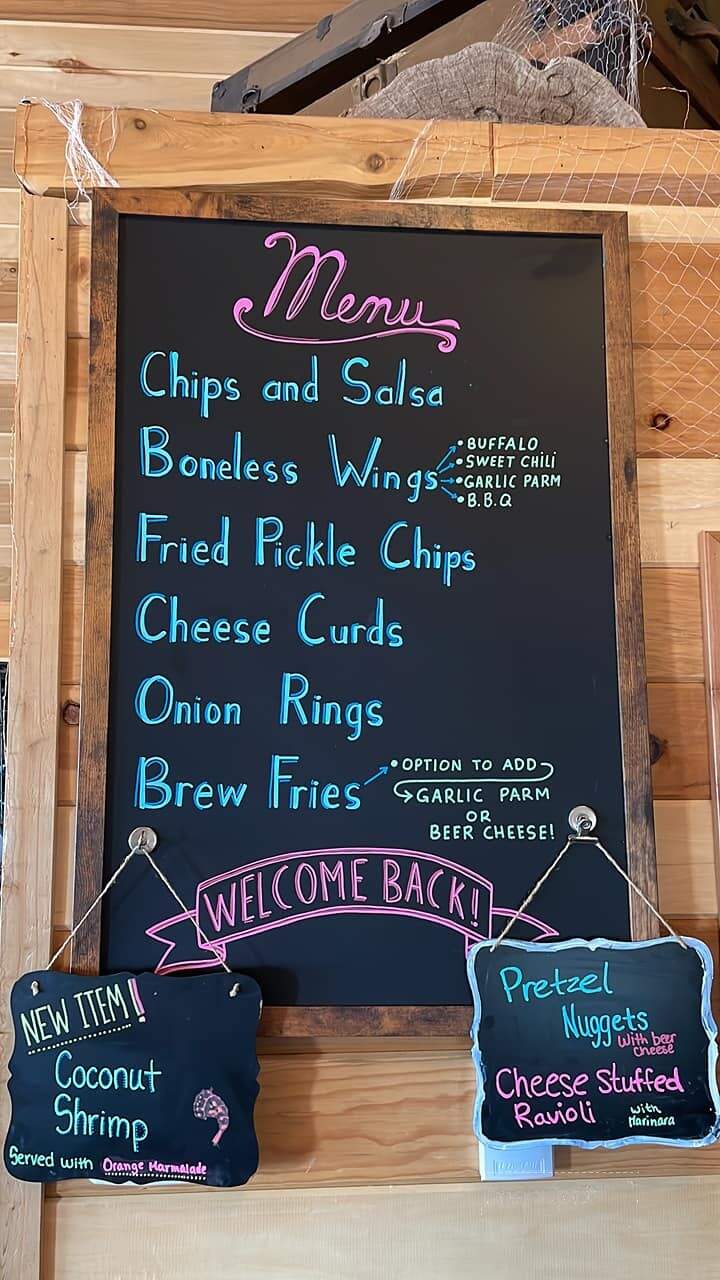 Menu
Chips and Salsa
Boneless Wings
• BUFFALO
• SWEET CHILI
• GARLIC PARM
• B.B.Q
Fried Pickle Chips
Cheese Curds
Onion Rings
Brew Fries
• OPTION TO ADD
GARLIC PARM
OR
BEER CHEESE!
WELCOME BACK!
NEW ITEM!
Coconut
Shrimp
Served with Orange Marmalade
Pretzel
Nuggets
With beer
cheese
Cheese Stuffed
Ravioli
with
Marinara